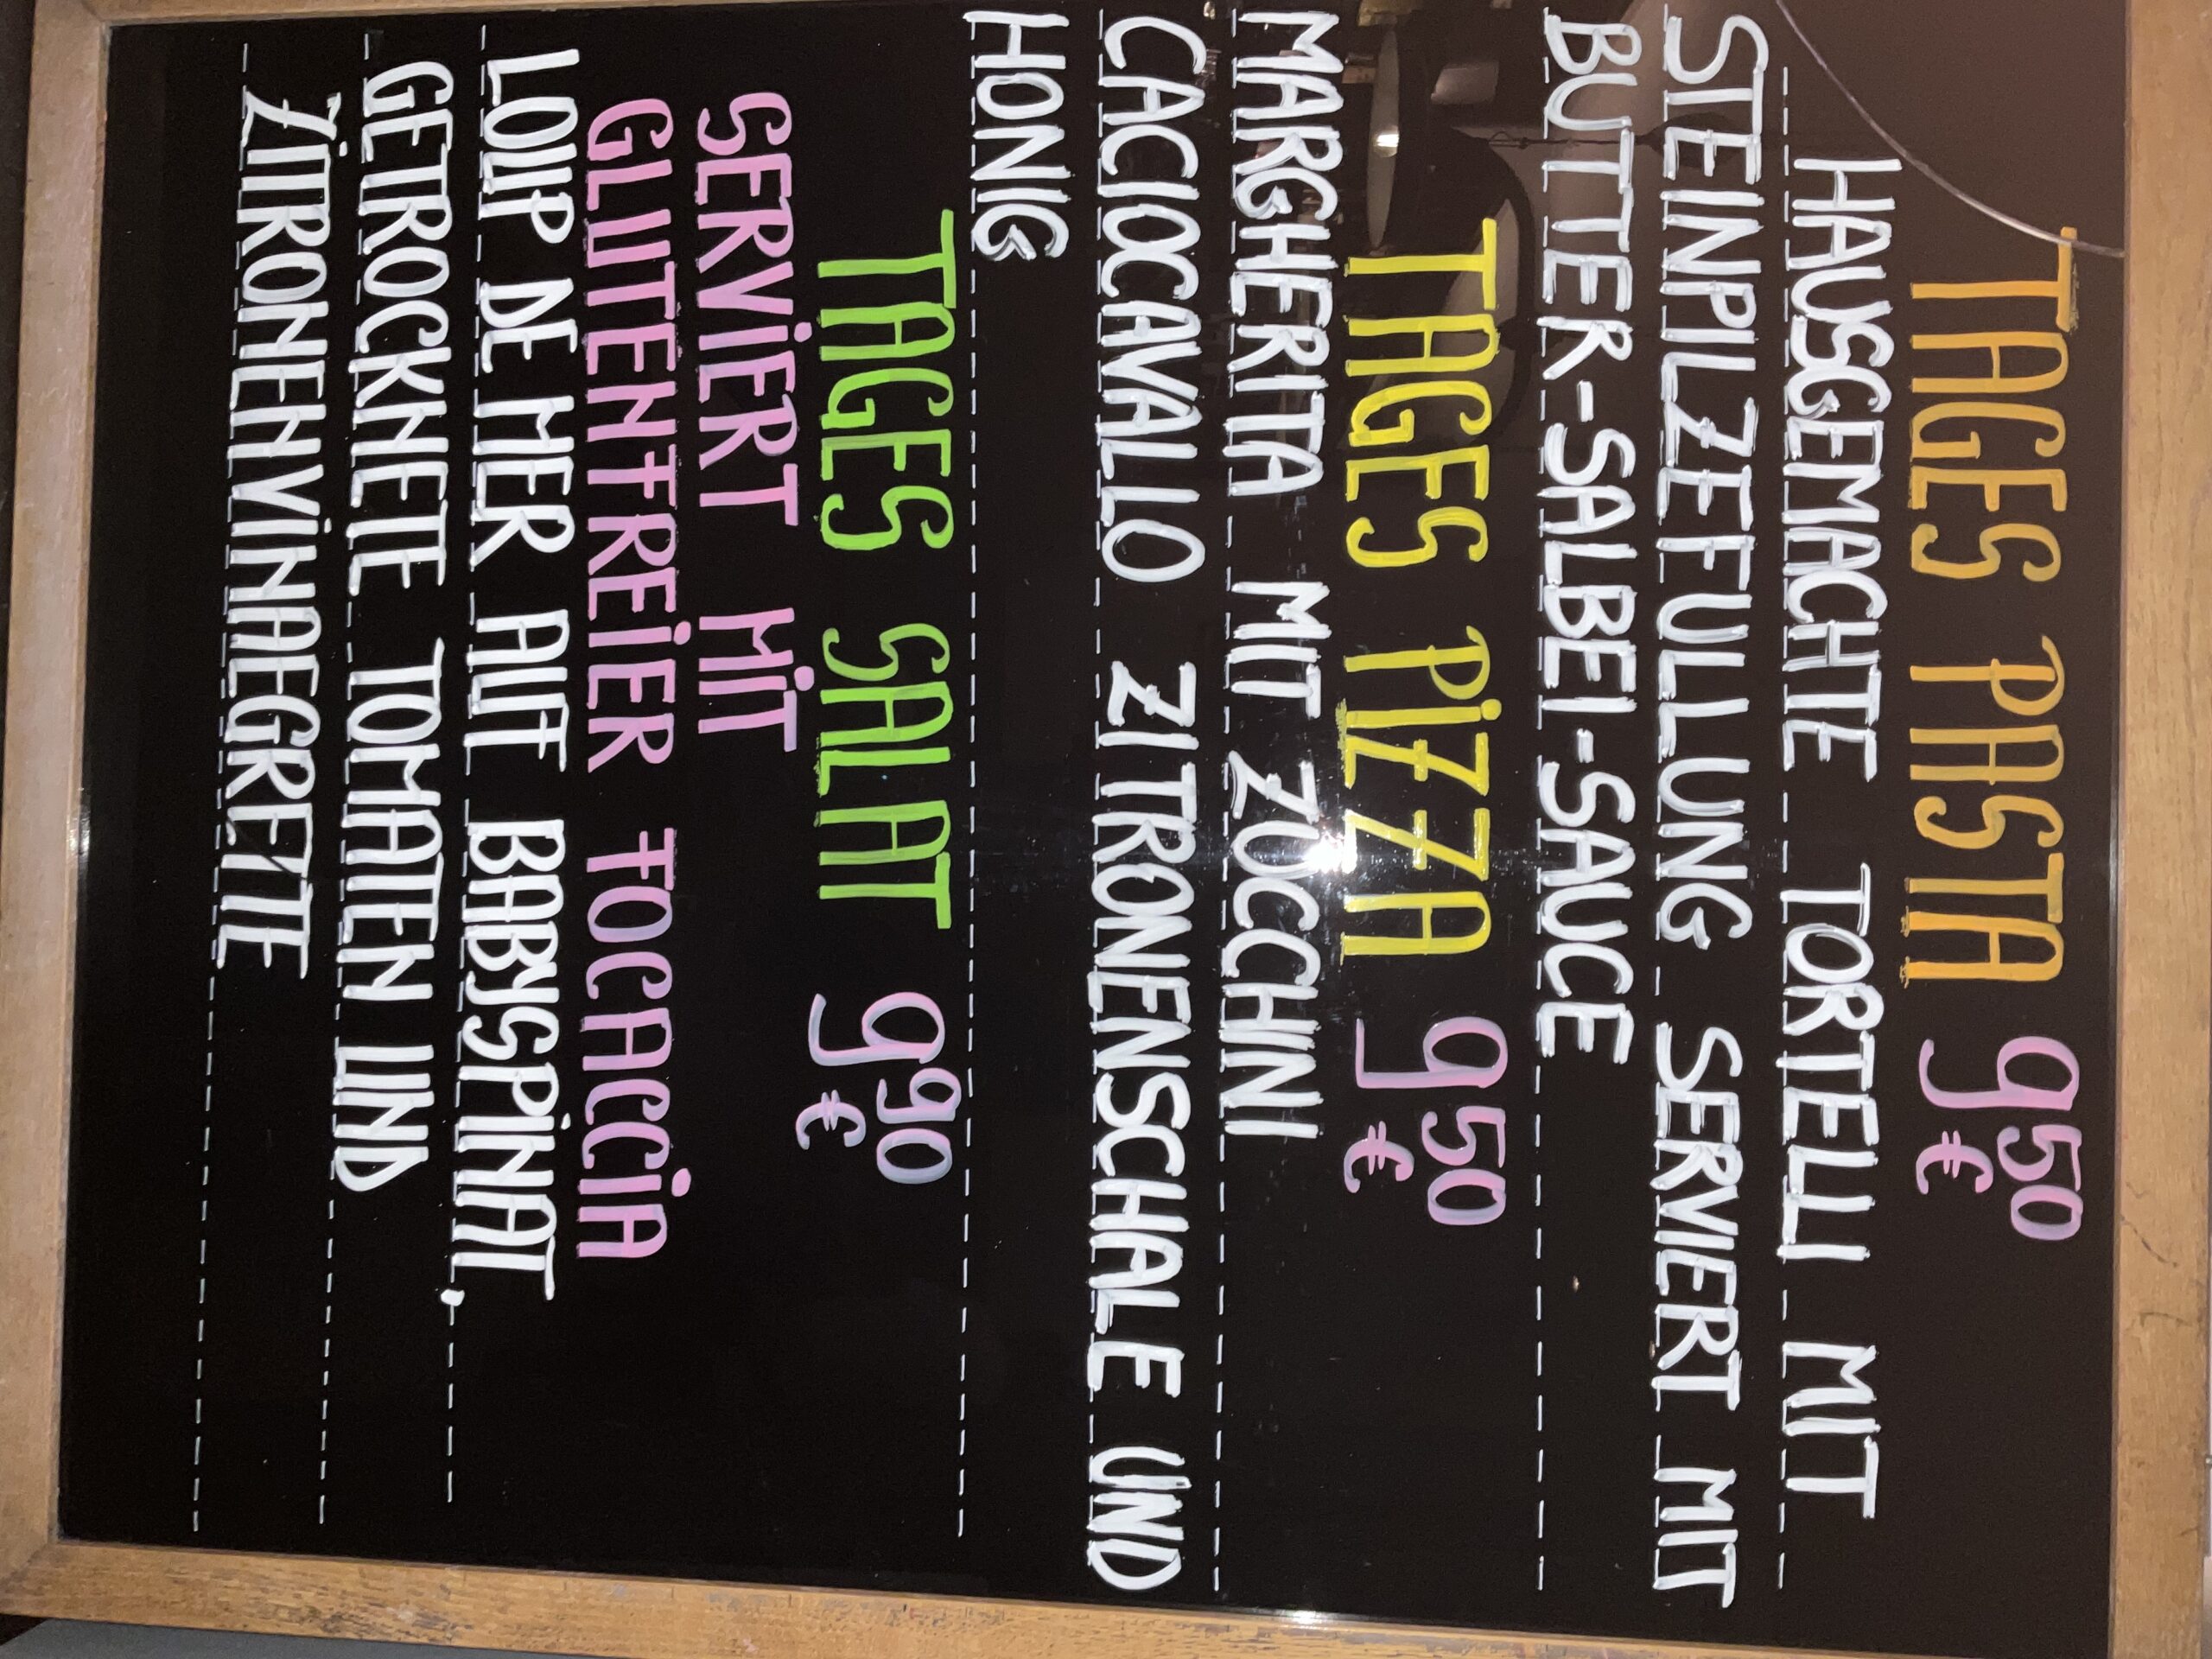 TAGES PASTA 9,50 €
HAUSGEMACHTE TORTELLI MIT
STEINPILZEFÜLLUNG SERVIERT MIT
BUTTER-SALBEI-SAUCE
TAGES PIZZA 9,50 €
MARGHERITA MIT ZUCCHINI
CACIOCAVALLO ZITRONENSCHALE UND
HONIG
TAGES SALAT 9,90 €
SERVIERT MIT
GLUTENFREIER FOCACCIA
LOUP DE MER AUF BABYSPINAT,
GETROCKNETE TOMATEN UND
ZITRONENVINAEGRETTE